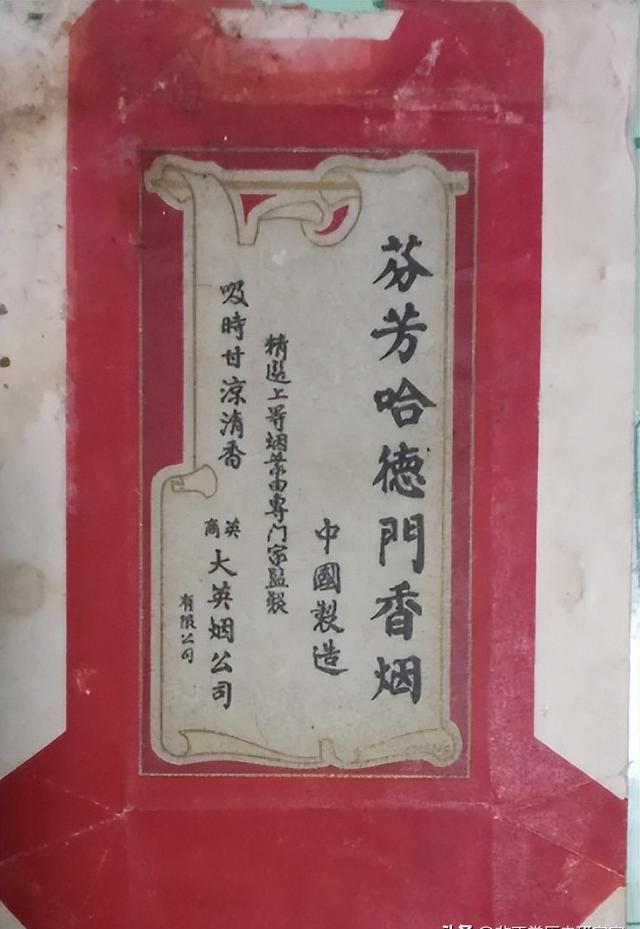 芬芳哈德門香烟
中國製造
精選上等烟葉由專门家監製
吸時甘凉清香
英商
大英烟公司
有限公司